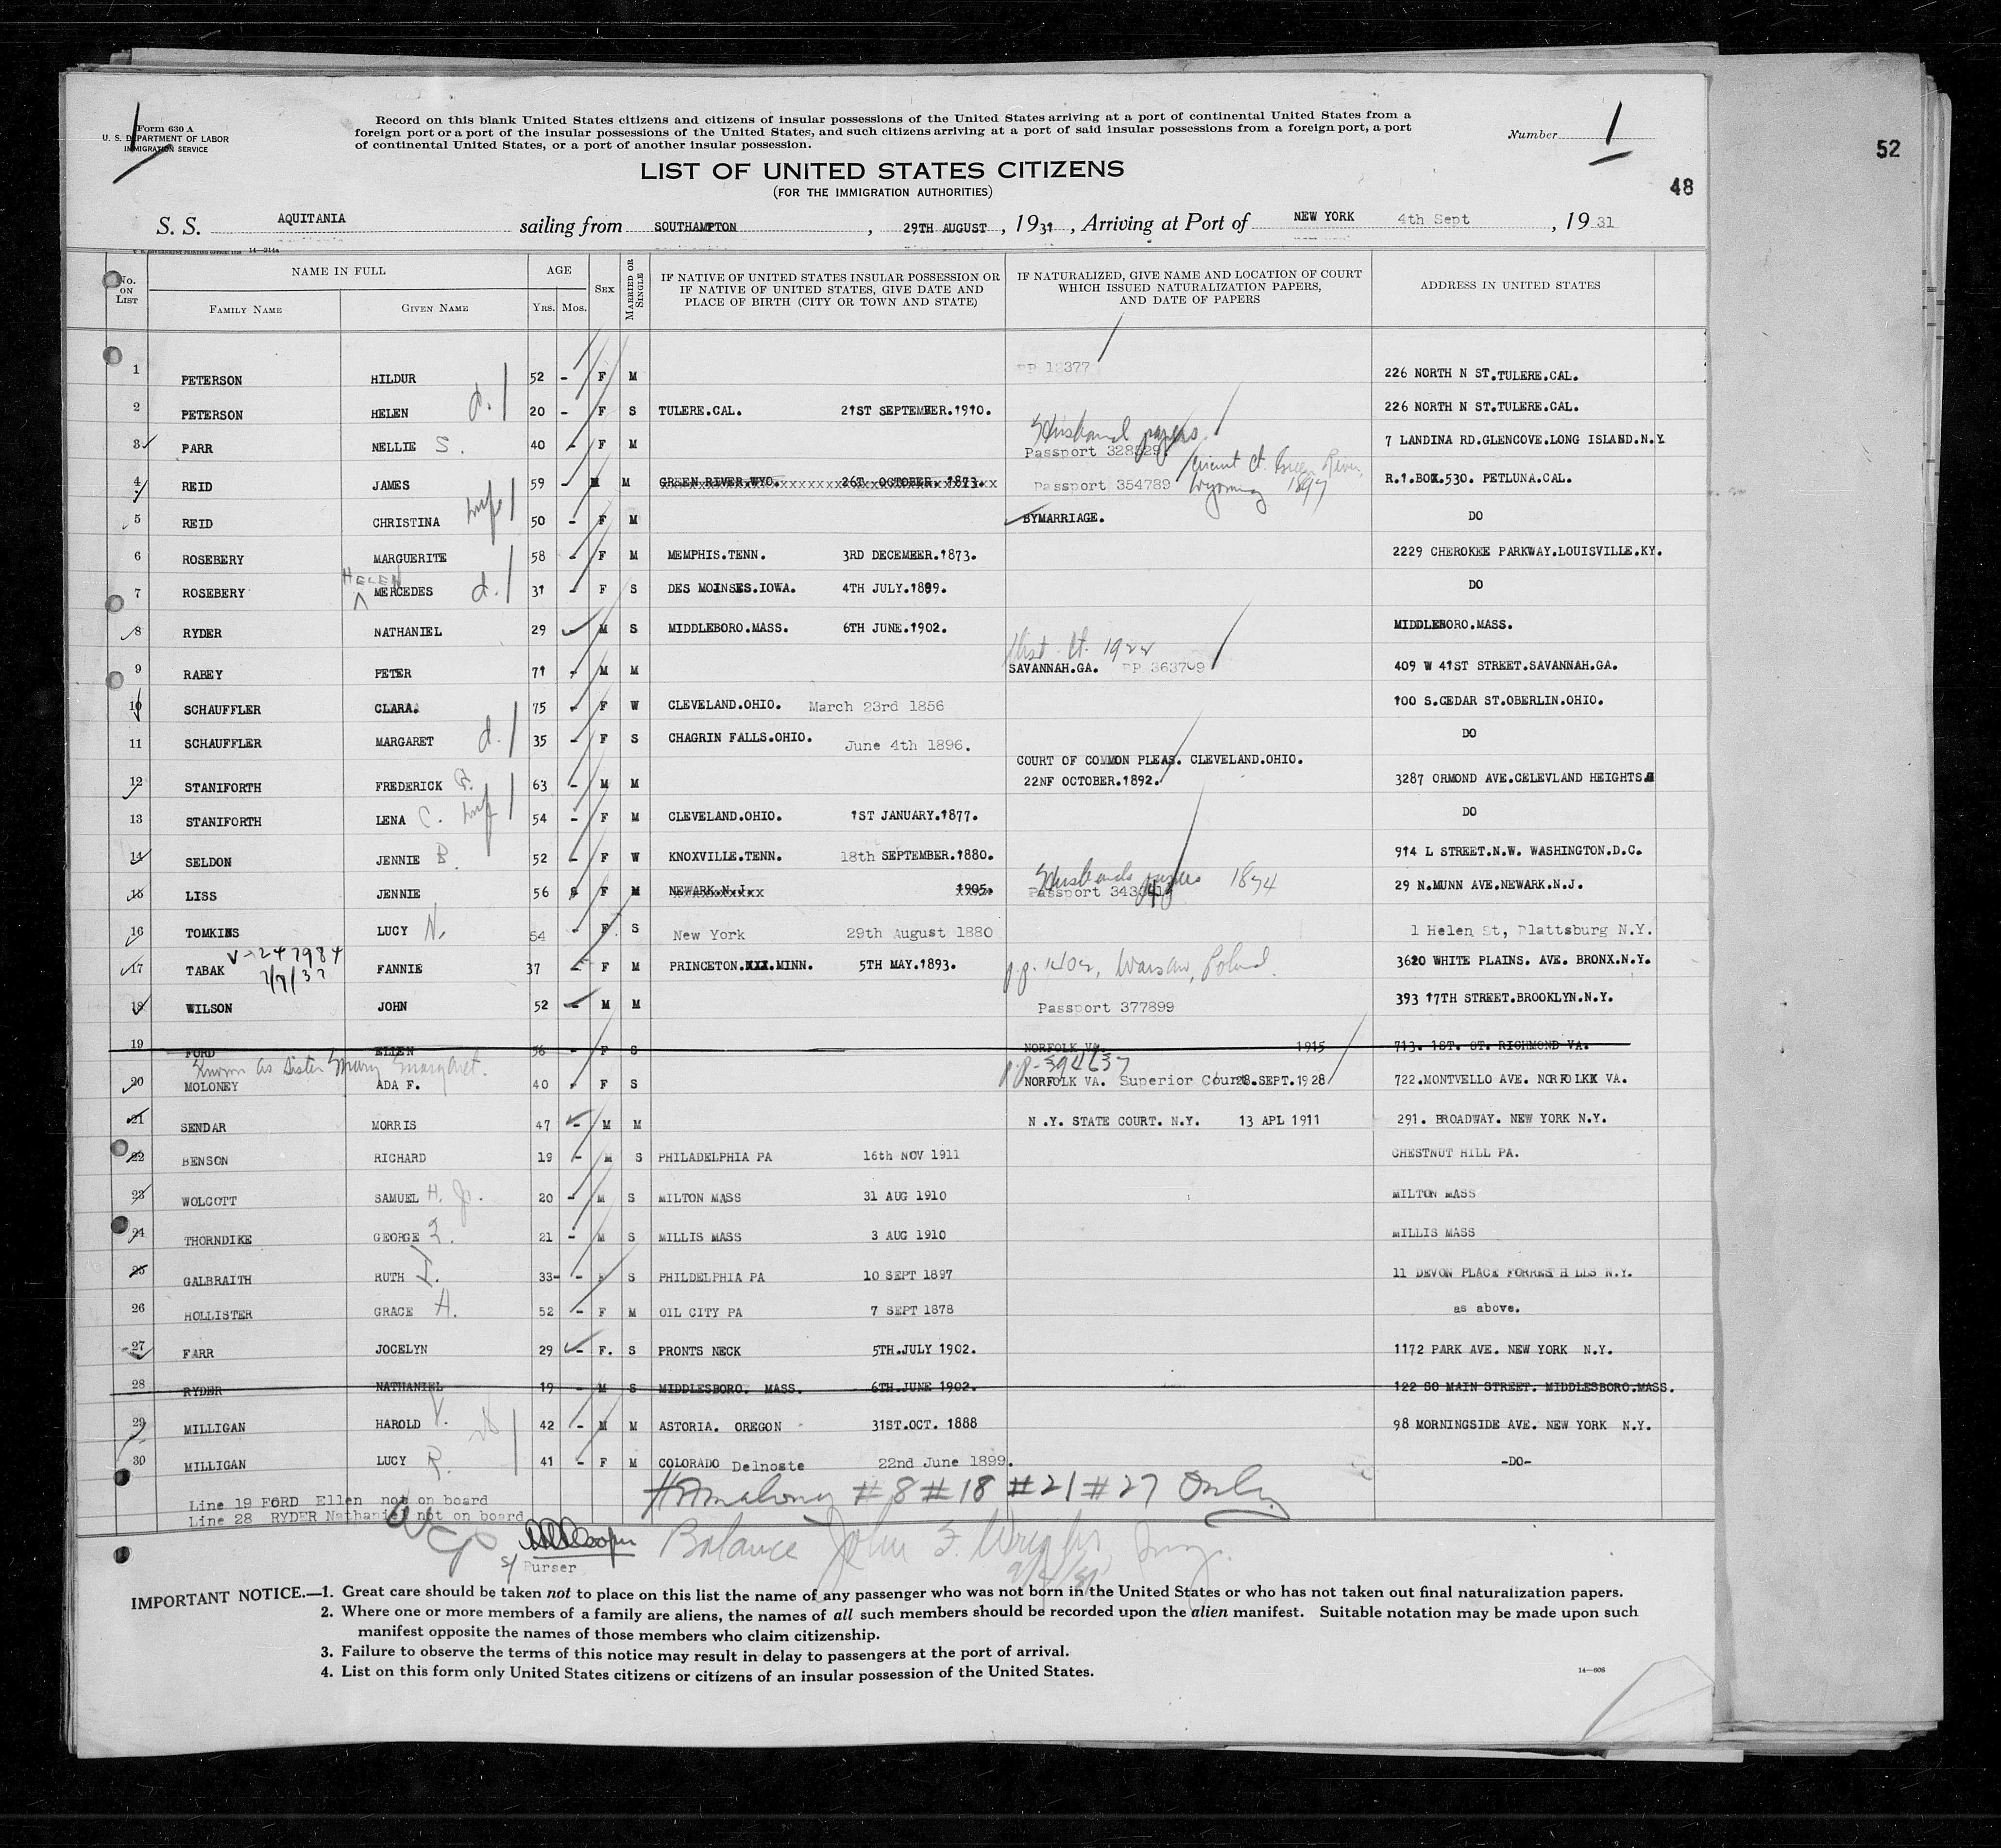 Form 630 A
U. S. DEPARTMENT OF LABOR
IMMIGRATION SERVICE
1
Record on this blank United States citizens and citizens of insular possessions of the United States arriving at a port of continental United States from a
foreign port or a port of the insular possessions of the United States, and such citizens arriving at a port of said insular possessions from a foreign port, a port
of continental United States, or a port of another insular possession.
Number 1
52
LIST OF UNITED STATES CITIZENS
(FOR THE IMMIGRATION AUTHORITIES)
48
S. S. AQUITANIA sailing from SOUTHAMPTON , 29TH AUGUST , 1931 , Arriving at Port of NEW YORK 4th Sept , 19 31
14—214a
No. ON LIST
NAME IN FULL
FAMILY NAME
GIVEN NAME
AGE
YRS. MOS.
SEX
MARRIED OR SINGLE
IF NATIVE OF UNITED STATES INSULAR POSSESSION OR
IF NATIVE OF UNITED STATES, GIVE DATE AND
PLACE OF BIRTH (CITY OR TOWN AND STATE)
IF NATURALIZED, GIVE NAME AND LOCATION OF COURT
WHICH ISSUED NATURALIZATION PAPERS,
AND DATE OF PAPERS
ADDRESS IN UNITED STATES
1 PETERSON HILDUR 52 - F M PP 12377 226 NORTH N ST.TULERE.CAL.
2 PETERSON HELEN d. 20 - F S TULERE.CAL. 21ST SEPTEMBER.1910. 226 NORTH N ST.TULERE.CAL.
Husband papers
3 PARR NELLIE S. 40 - F M Passport 7 LANDINA RD.GLENCOVE.LONG ISLAND.N.Y
4 REID JAMES 59 - M M GREEN RIVER.WYO. 26T. OCTOBER.1873. Passport 354789 Circuit Ct. Green River, Wyoming 1897 R.1.BOX.530. PETLUNA.CAL.
5 REID CHRISTINA wife 50 - F M BYMARRIAGE. DO
6 ROSEBERY MARGUERITE 58 - F M MEMPHIS.TENN. 3RD DECEMBER.1873. 2229 CHEROKEE PARKWAY.LOUISVILLE.KY.
HELEN
7 ROSEBERY MERCEDES d. 31 - F S DES MOINSES.IOWA. 4TH JULY.1899. DO
8 RYDER NATHANIEL 29 M S MIDDLEBORO.MASS. 6TH JUNE.1902. MIDDLEBORO.MASS.
Ct. 1922
9 RABEY PETER 71 - M M SAVANNAH.GA. PP 363709 409 W 41ST STREET.SAVANNAH.GA.
10 SCHAUFFLER CLARA. 75 - F W CLEVELAND.OHIO. March 23rd 1856 100 S.CEDAR ST.OBERLIN.OHIO.
11 SCHAUFFLER MARGARET d. 35 - F S CHAGRIN FALLS.OHIO. June 4th 1896. DO
COURT OF COMMON PLEAS. CLEVELAND.OHIO.
12 STANIFORTH FREDERICK 63 - M M 22NF OCTOBER.1892. 3287 ORMOND AVE.CELEVLAND HEIGHTS
13 STANIFORTH LENA C. wife 54 - F M CLEVELAND.OHIO. 1ST JANUARY.1877. DO
14 SELDON JENNIE B. 52 - F W KNOXVILLE.TENN. 18th SEPTEMBER.1880. 914 L STREET.N.W. WASHINGTON.D.C.
Husbands papers 1894
15 LISS JENNIE 56 F M NEWARK.N.J. 1905. Passport 29 N.MUNN AVE.NEWARK.N.J.
16 TOMKINS LUCY N. 54 - F S New York 29th August 1880 1 Helen St, Plattsburg N.Y.
V-247984
17 TABAK FANNIE 37 - F M PRINCETON.XXX.MINN. 5TH MAY.1893. p.p. Warsaw, Poland. 3620 WHITE PLAINS. AVE. BRONX.N.Y.
18 WILSON JOHN 52 - M M Passport 377899 393 17TH STREET.BROOKLYN.N.Y.
19 FORD ELLEN 56 - F S NORFOLK VA. 1915 713. 1ST. ST. RICHMOND VA.
Known as Sister Mary Margaret. p.p-394637
20 MOLONEY ADA F. 40 - F S NORFOLK VA. Superior Court. 28.SEPT.1928 722.MONTVELLO AVE. NORFOLKK VA.
21 SENDAR MORRIS 47 - M M N .Y. STATE COURT. N.Y. 13 APL 1911 291. BROADWAY. NEW YORK N.Y.
22 BENSON RICHARD 19 - M S PHILADELPHIA PA 16th NOV 1911 CHESTNUT HILL PA.
23 WOLCOTT SAMUEL H. Jr. 20 - M S MILTON MASS 31 AUG 1910 MILTON MASS
24 THORNDIKE GEORGE L. 21 - M S MILLIS MASS 3 AUG 1910 MILLIS MASS
25 GALBRAITH RUTH I. 33- - F S PHILDELPHIA PA 10 SEPT 1897 11 DEVON PLACE FORREST H LLS N.Y.
26 HOLLISTER GRACE H. 52 - F M OIL CITY PA 7 SEPT 1878 as above.
27 FARR JOCELYN 29 - F. S PRONTS NECK 5TH.JULY 1902. 1172 PARK AVE. NEW YORK N.Y.
28 RYDER NATHANIEL 19 - M S MIDDLESBORO. MASS. 6TH.JUNE 1902. 122 SO MAIN STREET. MIDDLESBORO.MASS.
29 MILLIGAN HAROLD V. 42 - M M ASTORIA. OREGON 31ST.OCT. 1888 98 MORNINGSIDE AVE. NEW YORK N.Y.
30 MILLIGAN LUCY R. 41 - F M COLORADO Delnoste 22nd June 1899. -DO-
#8 #18 #21 #27 Only
Line 19 FORD Ellen not on board
Line 28 RYDER Nathaniel not on board
s/ Purser
Balance John F. Wright Insp.
IMPORTANT NOTICE.—1. Great care should be taken not to place on this list the name of any passenger who was not born in the United States or who has not taken out final naturalization papers.
2. Where one or more members of a family are aliens, the names of all such members should be recorded upon the alien manifest. Suitable notation may be made upon such
manifest opposite the names of those members who claim citizenship.
3. Failure to observe the terms of this notice may result in delay to passengers at the port of arrival.
4. List on this form only United States citizens or citizens of an insular possession of the United States.
14—608